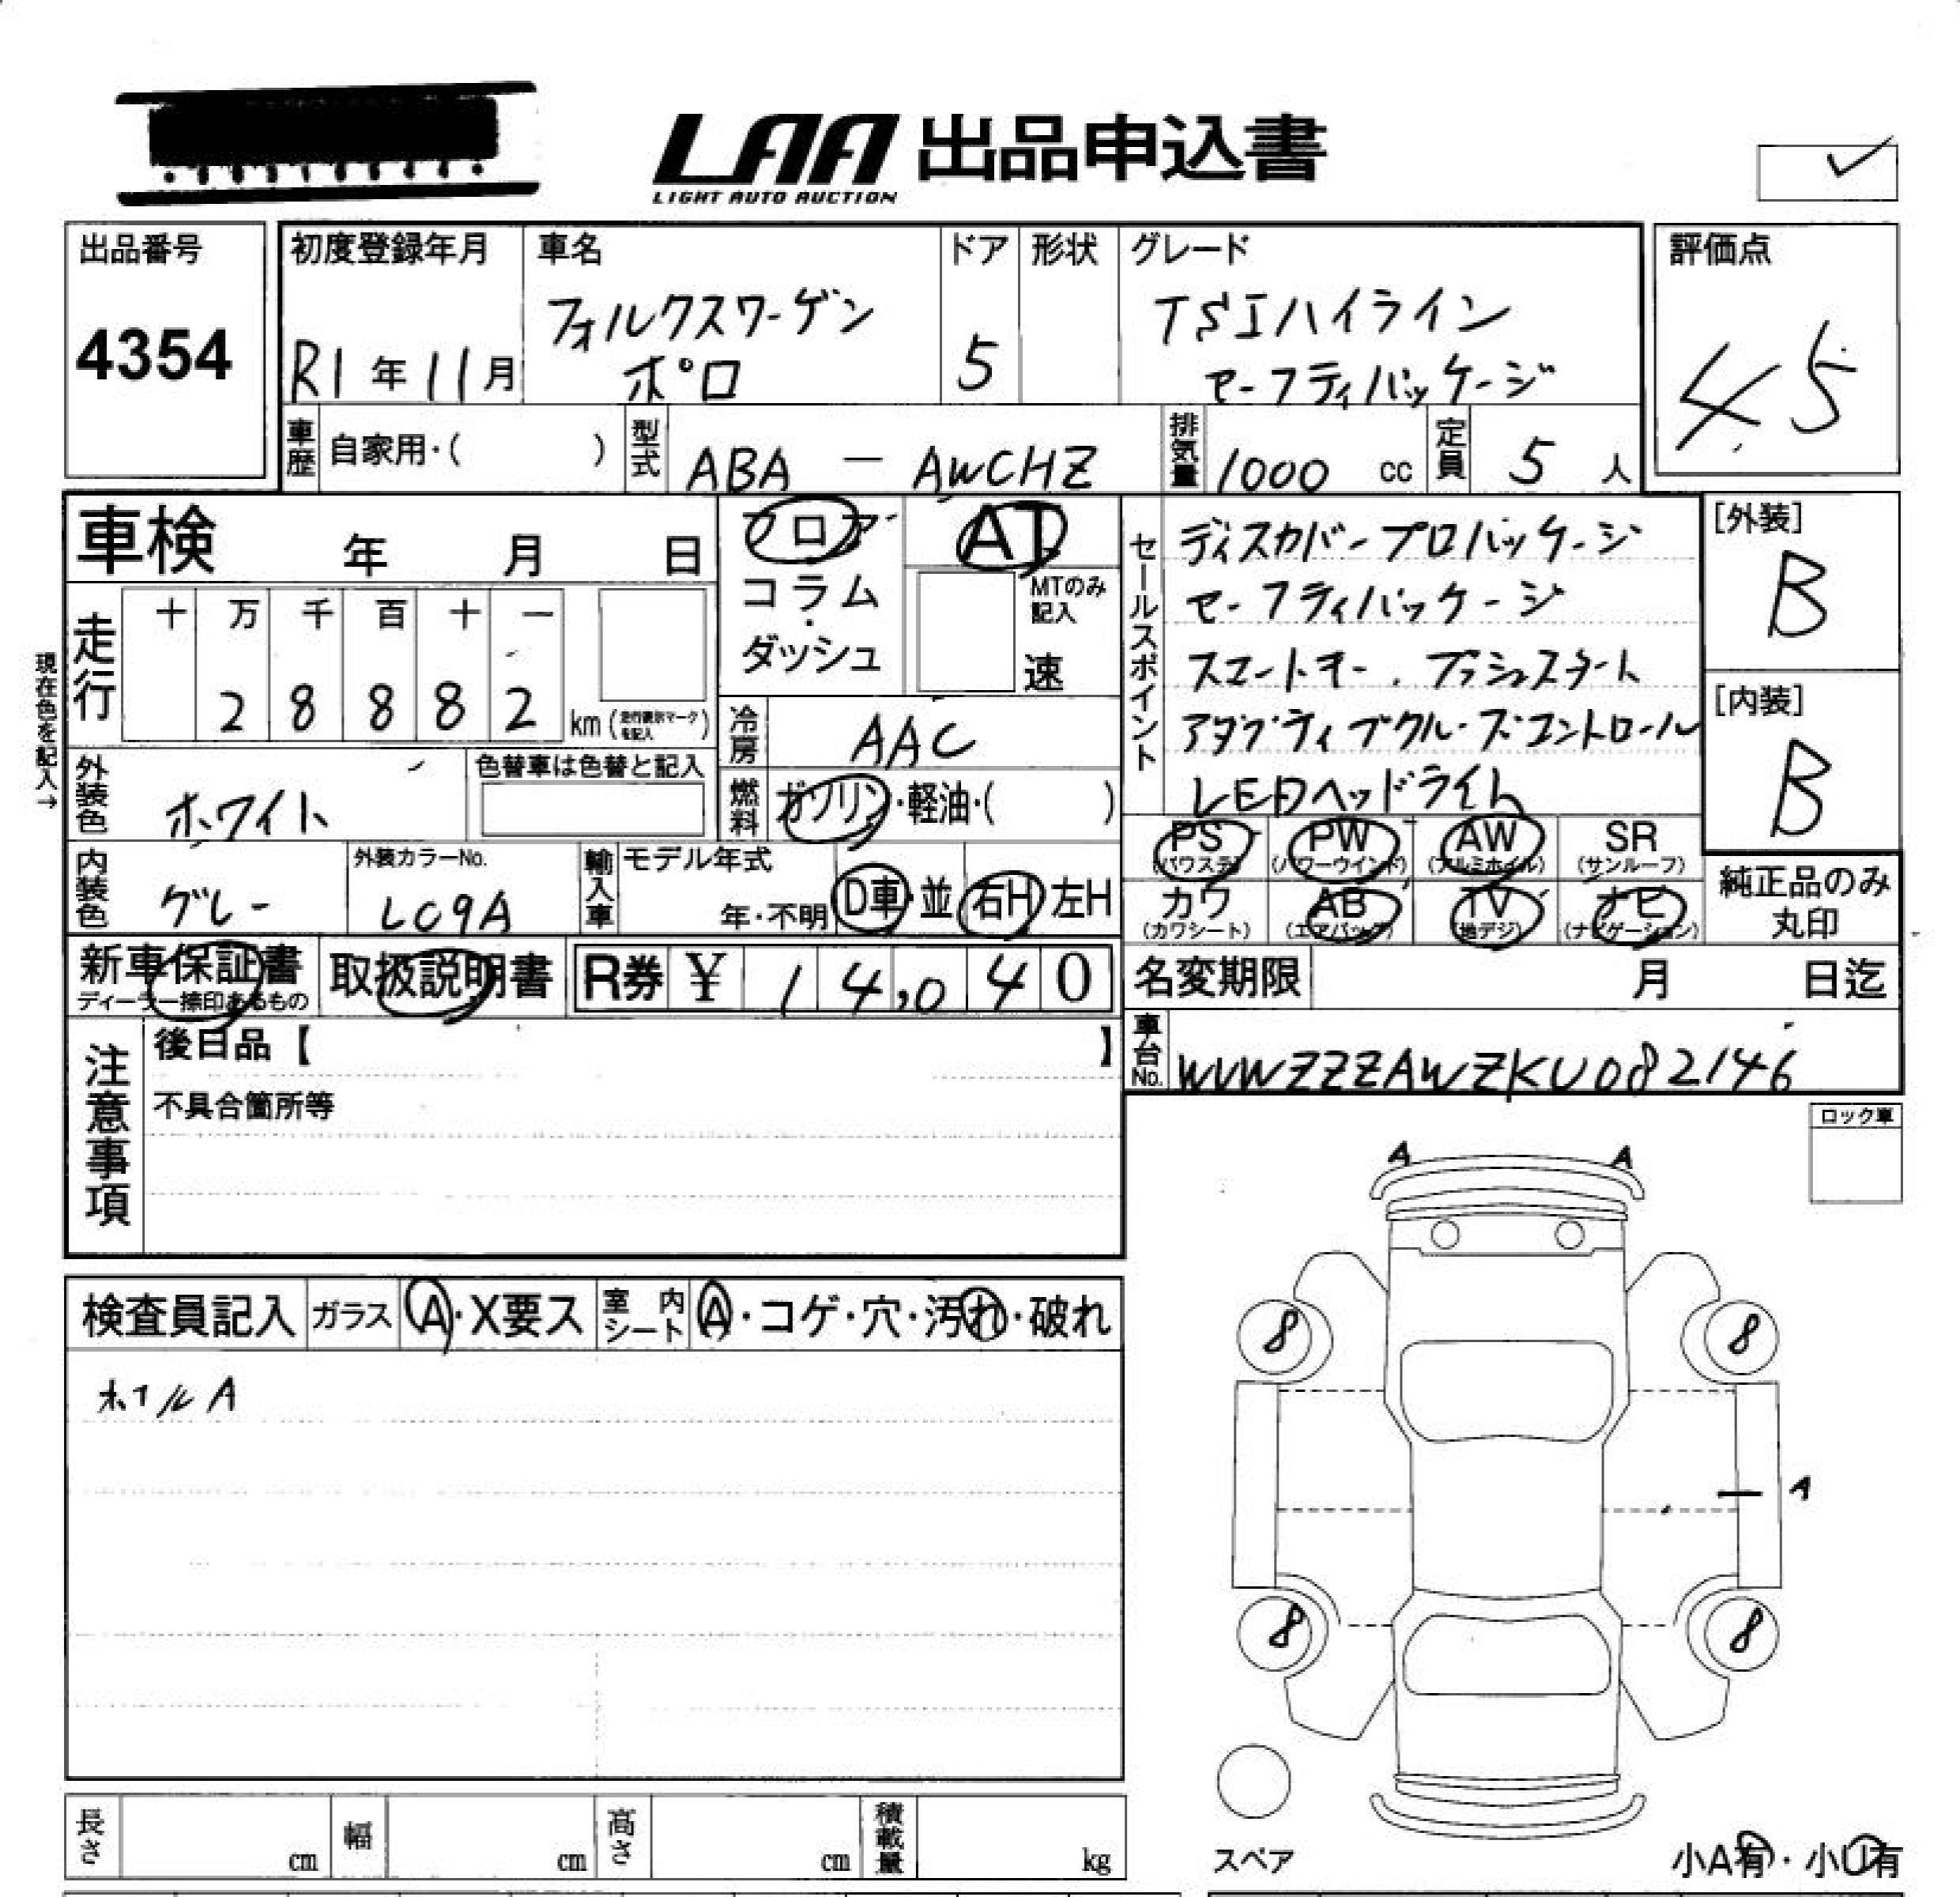 LAA 出品申込書
LIGHT AUTO AUCTION
出品番号
4354
初度登録年月
R1年11月
車名
フォルクスワーゲン
ポロ
ドア
5
形状
グレード
TSIハイライン
セーフティパッケージ
評価点
4.5
車歴 自家用・( )
型式 ABA - AWCHZ
排気量 1000 cc
定員 5 人
車検 年 月 日
フロア
コラム
・
ダッシュ
AT
MTのみ
記入
速
セールスポイント
ディスカバープロパッケージ
セーフティパッケージ
スマートキー.プッシュスタート
アダプティブクルーズコントロール
LEDヘッドライト
[外装]
B
[内装]
B
現在色を記入→
走行
十 万 千 百 十 一
2 8 8 8 2 km (走行表示マークを記入)
冷房 AAC
外装色 ホワイト
色替車は色替と記入
燃料 ガソリン・軽油・( )
PS PW AW SR
(パワステ) (パワーウインド) (アルミホイル) (サンルーフ)
カワ AB TV ナビ
(カワシート) (エアバッグ) (地デジ) (ナビゲーション)
純正品のみ
丸印
内装色 グレー
外装カラーNo.
LC9A
輸入車 モデル年式
年・不明
D車・並 右H 左H
新車保証書
ディーラー捺印あるもの
取扱説明書
R券 ¥ 14,040
名変期限 月 日迄
車台No. WVWZZZAWZKU082146
注意事項
後日品【 】
不具合箇所等
ロック車
検査員記入 ガラス A・X要ス 室内シート A・コゲ・穴・汚れ・破れ
ホイルA
A A
8 8
A
8 8
スペア
小A有・小U有
長さ cm 幅 cm 高さ cm 積載量 kg